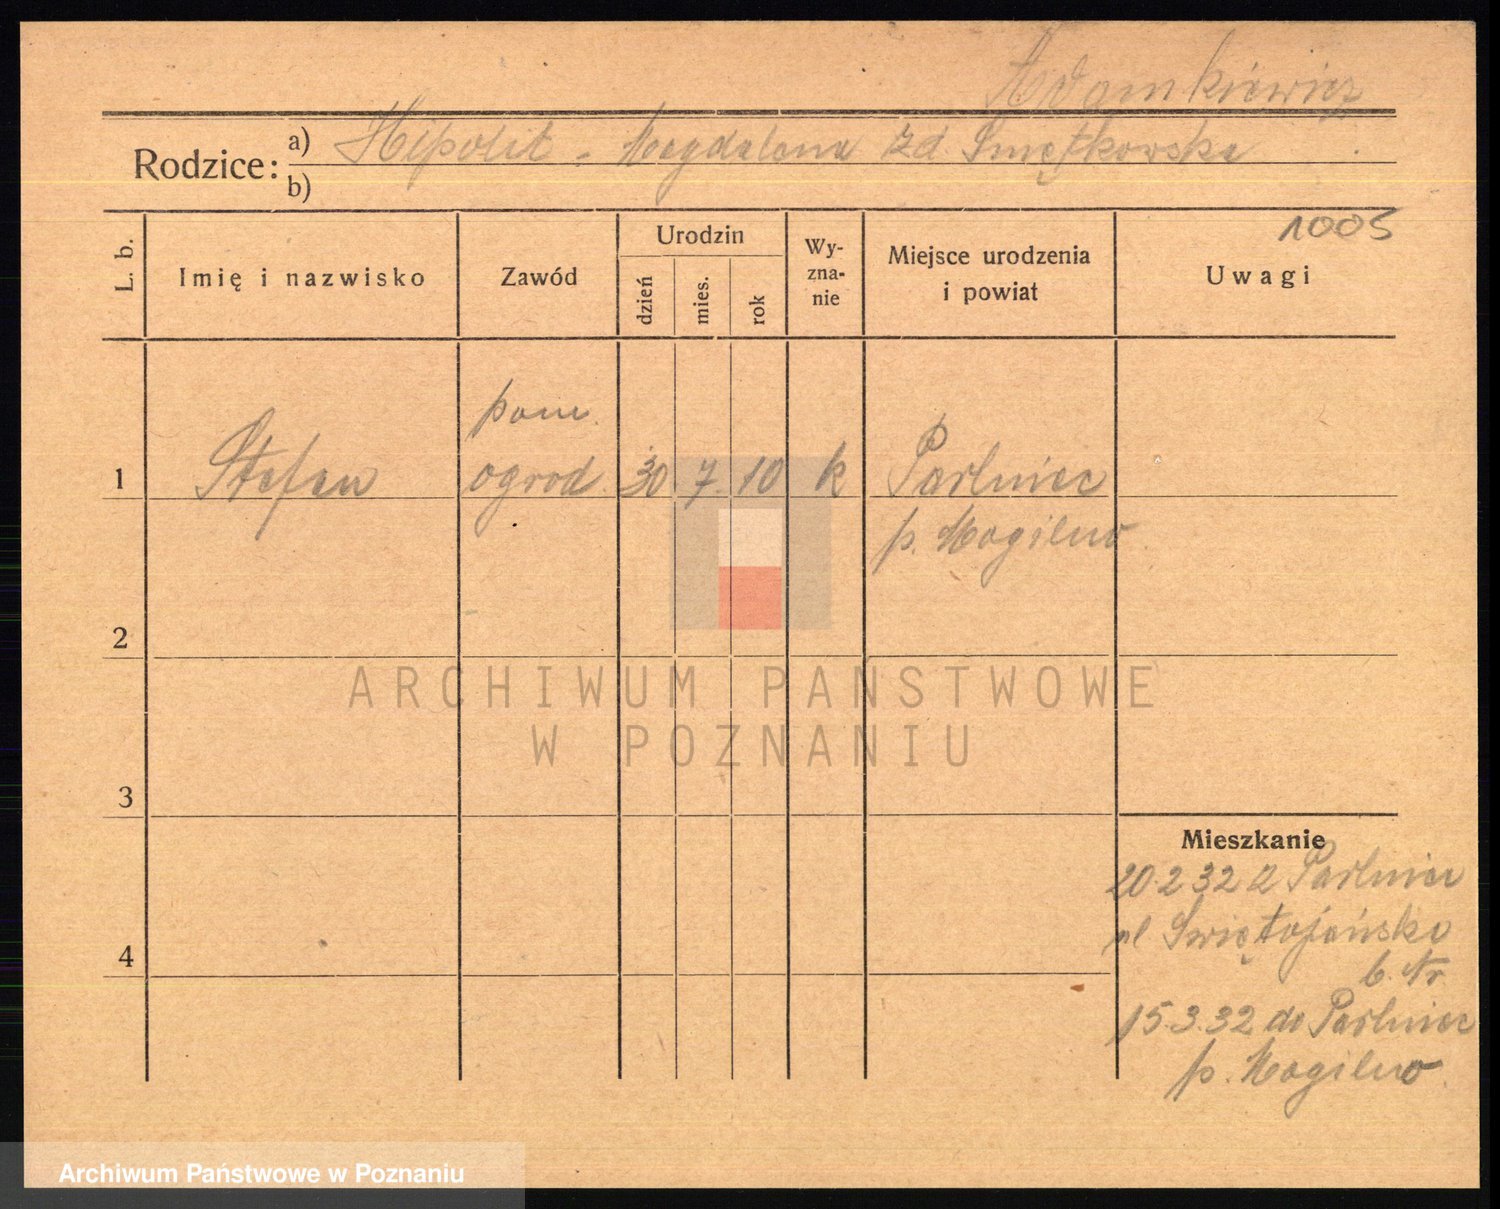 Adamkiewicz
Rodzice: a) Hipolit - Magdalena zd. Smętkowska
b)
1005
L. b.
Imię i nazwisko
Zawód
Urodzin
dzień
mies.
rok
Wy-
zna-
nie
Miejsce urodzenia
i powiat
Uwagi
pom.
1 Stefan ogrod. 30 7 10 k Parlniec
p. Mogilno
2
3
4
Mieszkanie
20.2 32 z Parlniec
pl Świętojański
b. Nr.
15.3.32 do Parlniec
p. Mogilno
ARCHIWUM PAŃSTWOWE
W POZNANIU
Archiwum Państwowe w Poznaniu